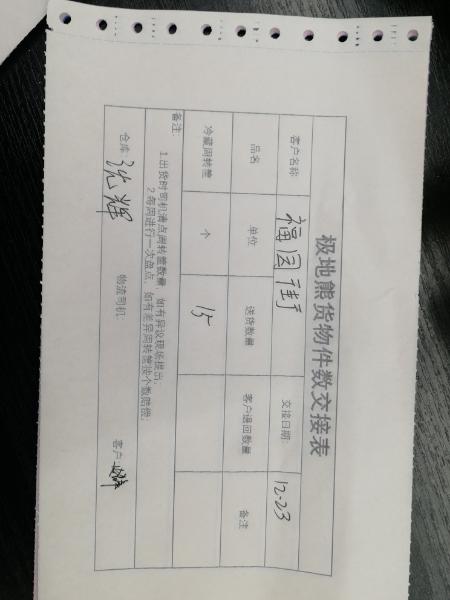 极地熊货物件数交接表
客户名称 福国街 交接日期: 12-23
品名 单位 送货数量 客户退回数量 备注
冷藏周转筐 个 15
备注:
1.出货时司机清点周转筐数量,如有异议现场提出;
2.每周进行一次盘点,如有差异周转筐按个数赔偿;
仓库: 沈辉 物流司机: 客户: